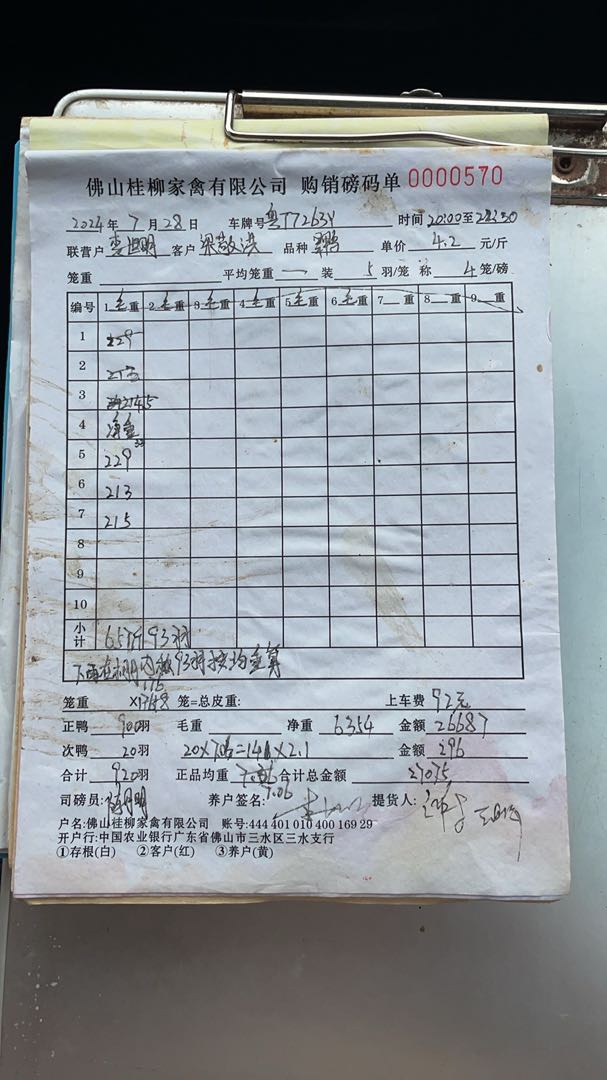 佛山桂柳家禽有限公司 购销磅码单 0000570
2024年 7月 28日 车牌号粤T7263Y 时间 20:00至
联营户 客户 梁敬洪 品种 单价 4.2 元/斤
笼重 平均笼重 一 装 5 羽/笼 称 4 笼/磅
编号 1 毛 重 2 毛 重 3 毛 重 4 毛 重 5 毛 重 6 毛 重 7 重 8 重 9 重
1 229
2 213
3 214.5
4 净重
5 229
6 213
7 215
8
9
10
小计 657斤93羽
93羽按均重算
笼重 X 笼=总皮重: 上车费 92元
正鸭 900羽 毛重 净重 6354 金额 26687
次鸭 20羽 金额 296
合计 920羽 正品均重 7.06 合计总金额 27075
司磅员: 养户签名: 提货人:
户名:佛山桂柳家禽有限公司 账号:444 401 010 400 169 29
开户行:中国农业银行广东省佛山市三水区三水支行
①存根(白) ②客户(红) ③养户(黄)